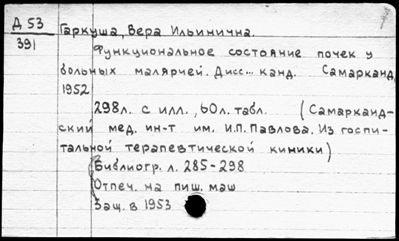 Д 53
391
Гаркуша, Вера Ильинична.
Функциональное состояние почек у
больных малярией. Дисс... канд. Самарканд,
1952
298л. с илл., 60л. табл. (Самарканд-
ский мед. ин-т им. И.П. Павлова. Из госпи-
тальной терапевтической киники)
Библиогр. л. 285-298
Отпеч. на пиш. маш
Защ. в 1953